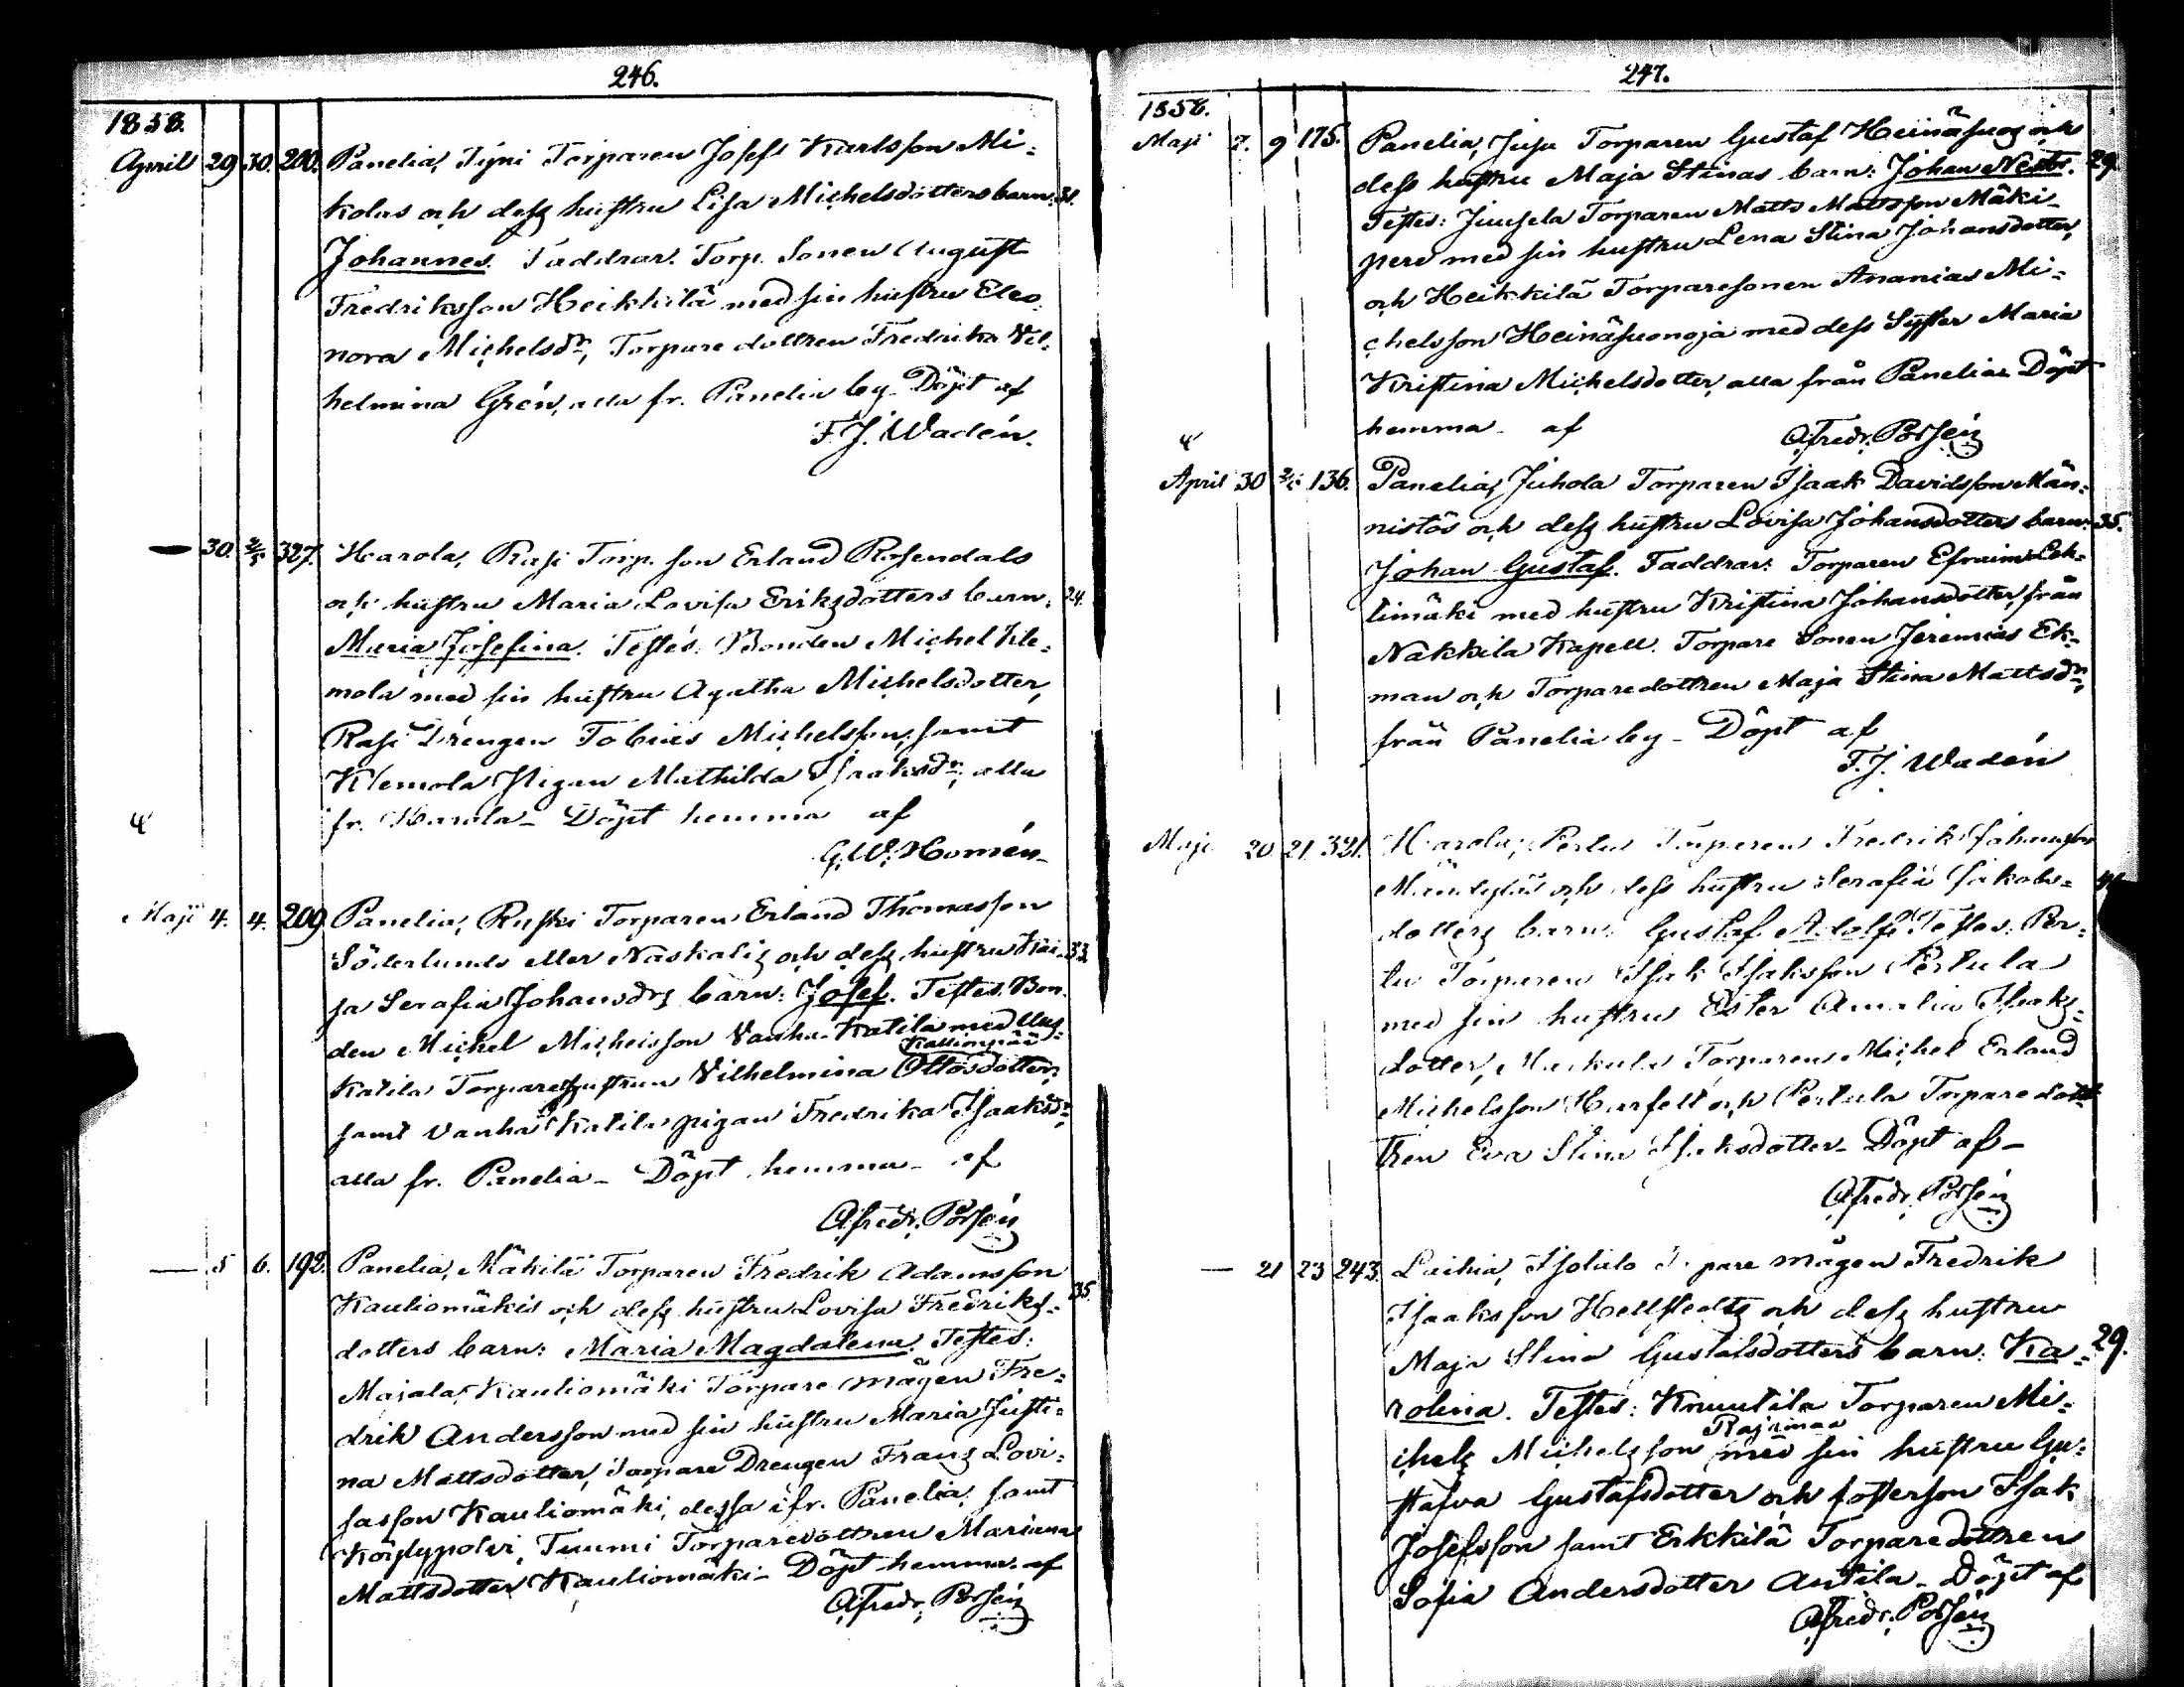 246.
1858.
April 29 30. 200. Panelia, Tyni Torparen Josef Karlsson Mi-
kolas och dess hustru Lisa Michelsdotters barn: 31.
Johannes. Faddrar. Torp. Sonen August
Fredriksson Heikkilä med sin hustru Eleo-
nora Michelsdr, Torpare dottren Fredrika Vil-
helmina Grén, alla fr. Panelia by_ Döpt af
F. J. Wadén.
— 30. 2/5 327. Harola, Rasi Torp. son Erland Rosendals
och hustru Maria Lovisa Eriksdotters barn: 24.
Maria Josefina. Testes. Bonden Michel Kle-
mola med sin hustru Agatha Michelsdotter,
Rasi Drengen Tobias Michelsson, samt
Klemola Pigan Mathilda Isaaksdr, alla
fr. Harola_ Döpt hemma af
G. W. Homén_
Maji 4. 4. 209 Panelia, Ruski Torparen Erland Thomasson
Söderlunds eller Naskalis och dess hustru Kai- 33.
sa Serafia Johansdrs barn: Josef. Testes. Bon-
den Michel Michelsson Vanha-Katila med Uus-
Kallionpää
Katila Torparehustrun Vilhelmina Ottosdotter,
samt Vanha Katila pigan Fredrika Isaaksdr,
alla fr. Panelia_ Döpt hemma_ af
A. Fredr. Porsén
— 5 6. 192. Panelia, Mäkilä Torparen Fredrik Adamsson
Kauliomäkis och dess hustru Lovisa Fredriks- 35.
dotters barn: Maria Magdalena. Testes:
Majala, Kauliomäki Torpare mågen Fre-
drik Andersson med sin hustru Maria Justi-
na Mattsdotter, Torpare Drengen Frans Lovi-
sasson Kauliomäki, dessa ifr. Panelia, samt
Köylypolvi, Tuumi Torparedottren Mariana
Mattsdotter Kauliomäki_ Döpt hemma af
A. Fredr. Porsén
247.
1858.
Maji 7. 9 175. Panelia, Jusu Torparen Gustaf Heinäsuoj och
dess hustru Maja Stinas barn: Johan Nestor. 29.
Testes: Juusela Torparen Matts Mattsson Mäki-
perä med sin hustru Lena Stina Johansdotter,
och Heikkilä Torparesonen Ananias Mi-
chelsson Heinäsuonoja med dess Syster Maria
Kristina Michelsdotter, alla från Panelia_ Döpt
hemma_ af A. Fredr. Porsén
April 30 2/5 136. Panelia, Juhola Torparen Isaak Davidsson Män-
nistös och dess hustru Lovisa Johansdotters barn: 35.
Johan Gustaf. Faddrar: Torparen Efraim Leh-
timäki med hustru Kristina Johansdotter, från
Nakkila Kapell. Torpare Sonen Jeremias Ek-
man och Torparedottren Maja Stina Mattsdr,
från Panelia by_ Döpt af
F. J. Wadén
Maji 20 21. 321. Harola, Pertus Torparen Fredrik Johansson
och dess hustru Serafia Jakobs-
dotters barn: Gustaf Adolf. Testes. Per-
tu Torparen Isak Isaksson Pertula
med sin hustru Ester Amalia Isaks-
dotter, Torparen Michel Erland
Michelsson och Pertula Torparedot-
tren Eva Stina Isaksdotter_ Döpt af_
A. Fredr. Porsén
— 21 23 243. Laihia, Isotalo Torpare mågen Fredrik
Isaaksson Hellstedts och dess hustru
Maja Stina Gustafsdotters barn: Ka- 29.
rolina. Testes: Knuutila Torparen Mi-
Rajamaa
chels Michelsson med sin hustru Gu-
stafva Gustafsdotter och fosterson Isak
Josefsson samt Erkkilä Torparedottren
Sofia Andersdotter Antila_ Döpt af
A. Fredr. Porsén